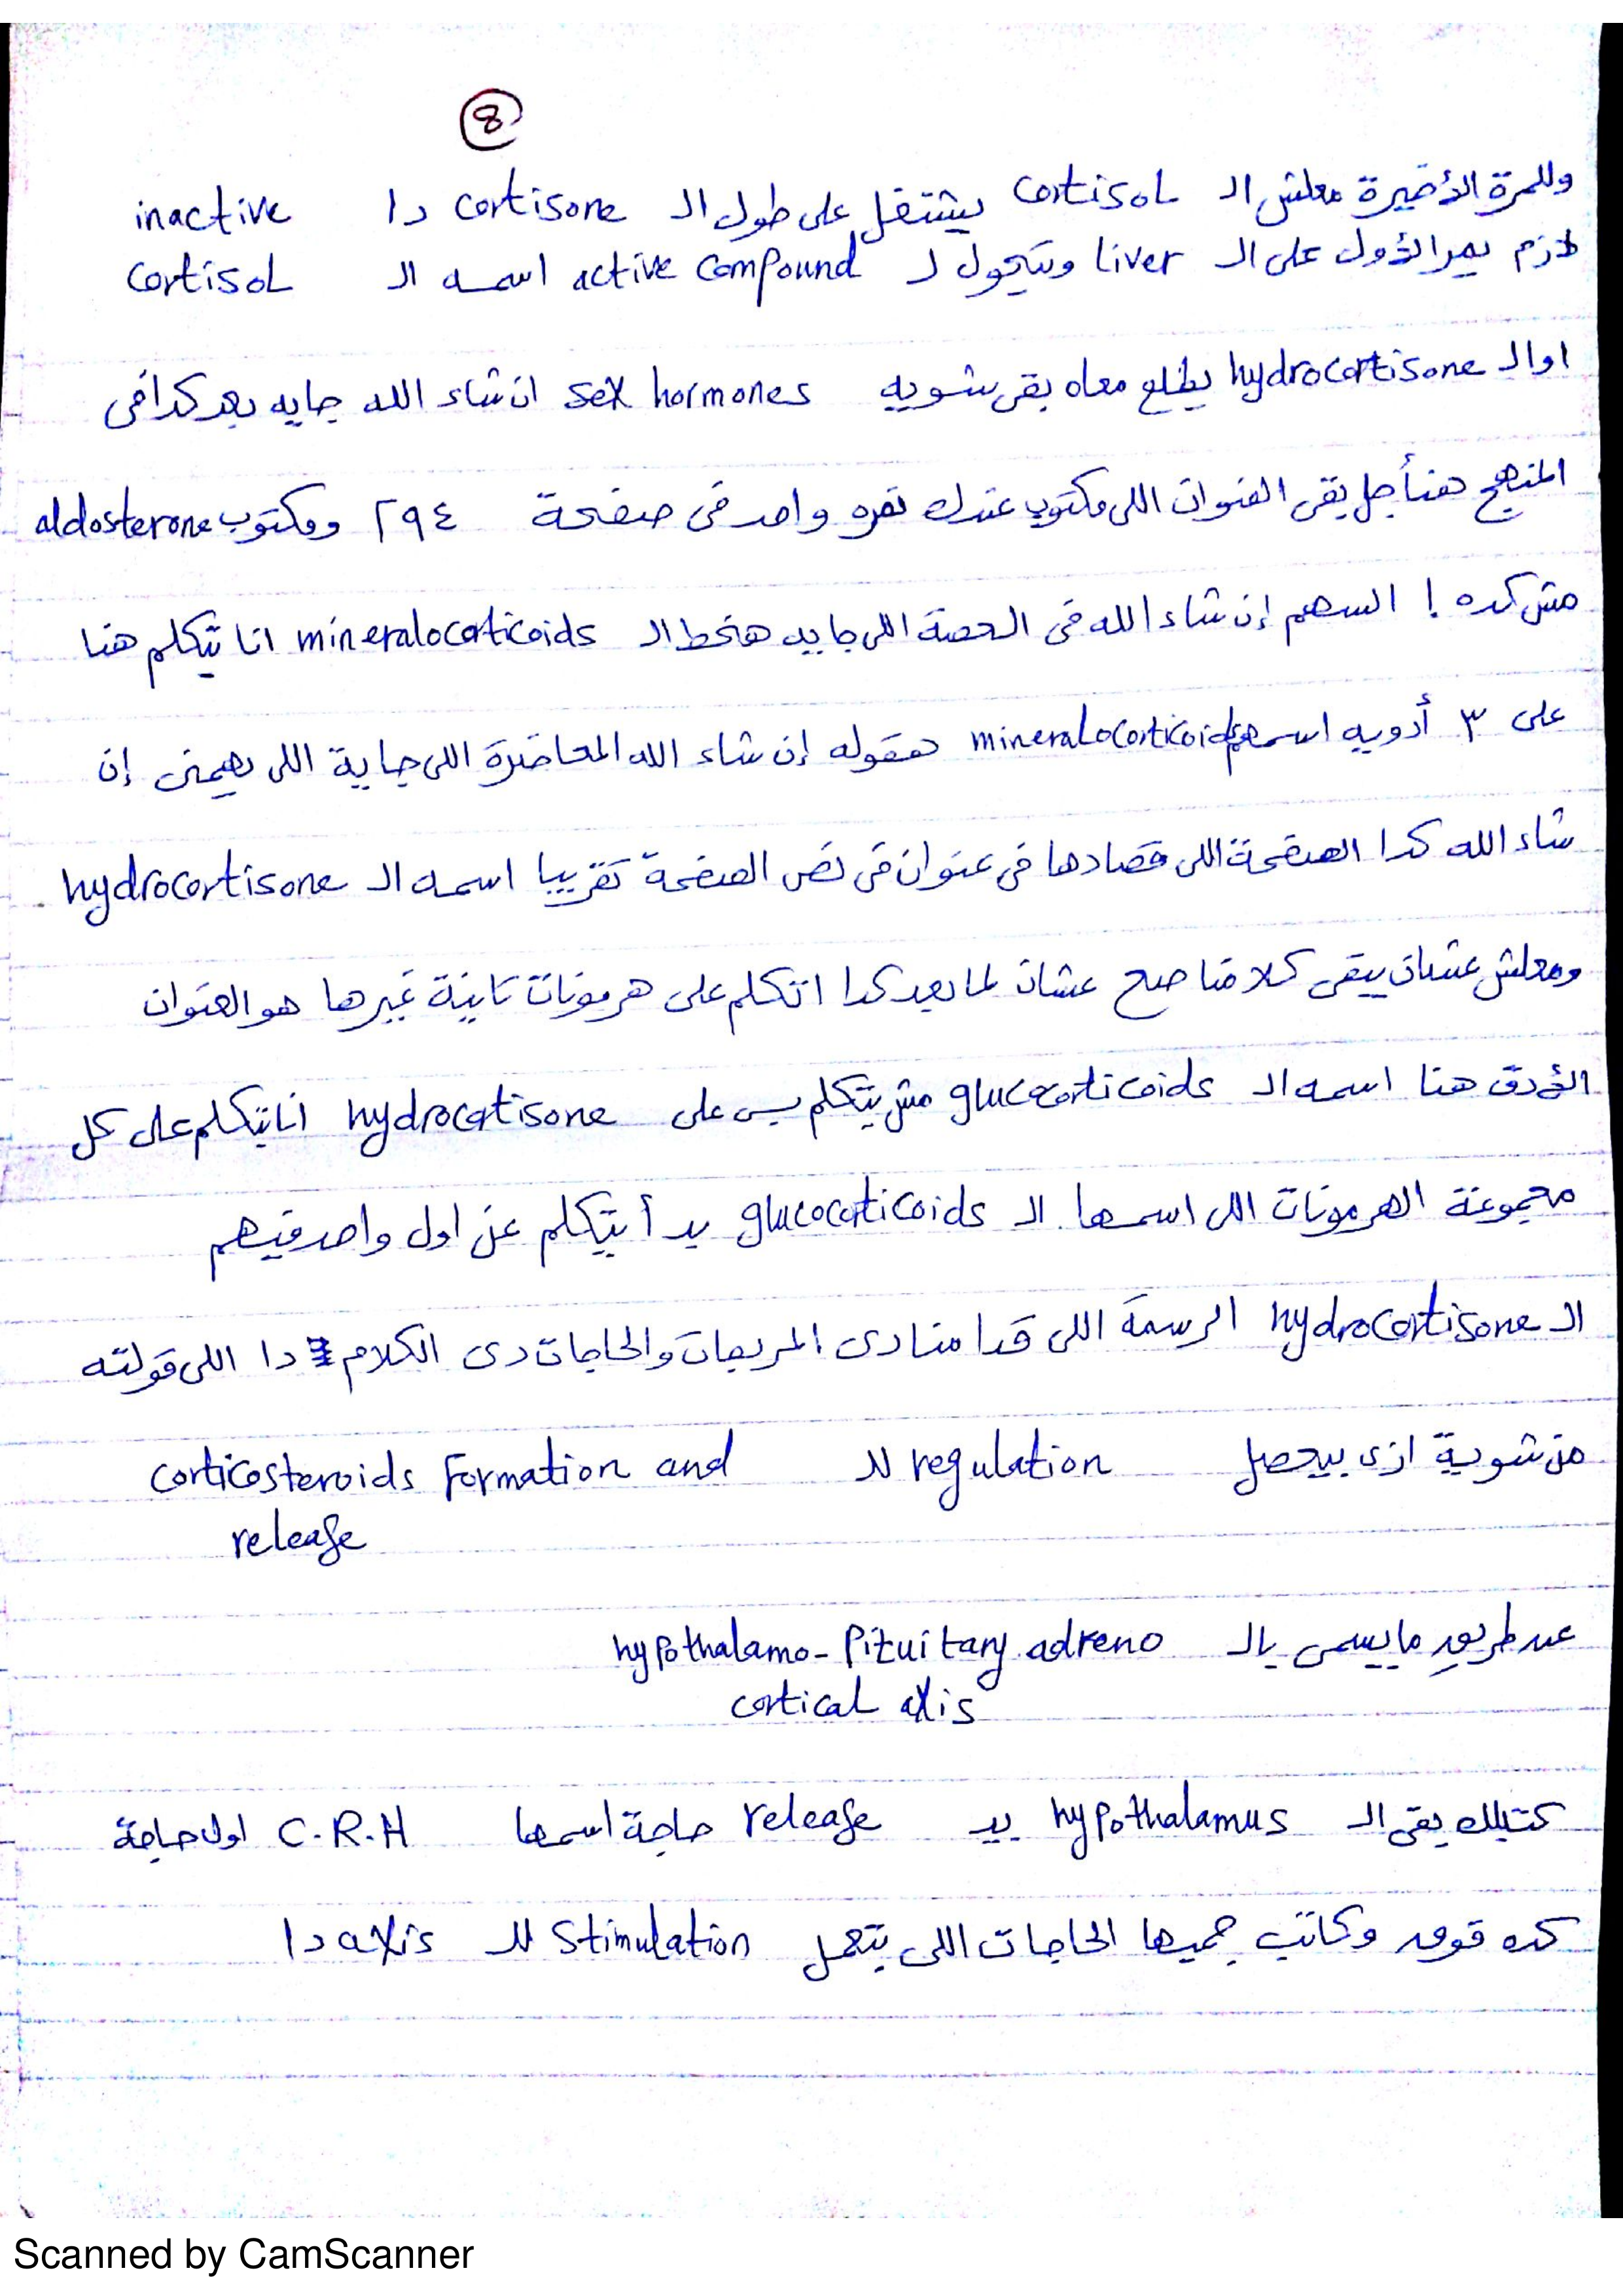 8
وللمرة الأخيرة معلش الـ cortisol بيشتغل على طول الـ cortisone دا inactive
لازم يمر الأول على الـ liver ويتحول لـ active compound اسمه الـ cortisol
او الـ hydrocortisone يطلع معاه بقى شويه sex hormones ان شاء الله جايه بعد كدا فى
المنهج هنأجل بقى العنوان اللى مكتوب عندك نمره واحد فى صفحة ٢٩٤ ومكتوب aldosterone
مش كده ! السهم إن شاء الله فى الحصة اللى جايه هنحط الـ mineralocorticoids انا بتكلم هنا
على ٣ أدويه اسمهم mineralocorticoids هقوله إن شاء الله المحاضرة اللى جاية اللى يهمنى إن
شاء الله كدا الصفحة اللى قصادها فى عنوان فى نص الصفحة تقريبا اسمه الـ hydrocortisone
ومعلش عشان يبقى كلامنا صح عشان لما بعد كدا اتكلم على هرمونات تانية غيرها هو العنوان
الأدق هنا اسمه الـ glucocorticoids مش بيتكلم بس على hydrocortisone أنا بتكلم على كل
مجموعة الهرمونات اللى اسمها الـ glucocorticoids بدأ بيتكلم عن اول واحد فيهم
الـ hydrocortisone الرسمة اللى قدامنا دى المربعات والحاجات دى الكلام دا اللى قولته
من شوية ازى بيحصل regulation للـ corticosteroids formation and
release
عن طريق ما يسمى بالـ hypothalamo-pituitary adreno
cortical axis
كتبلك بقى الـ hypothalamus بيـ release حاجة اسمها C.R.H اول حاجة
كده فوق وكاتب جمبها الحاجات اللى بتعمل stimulation للـ axis دا
Scanned by CamScanner